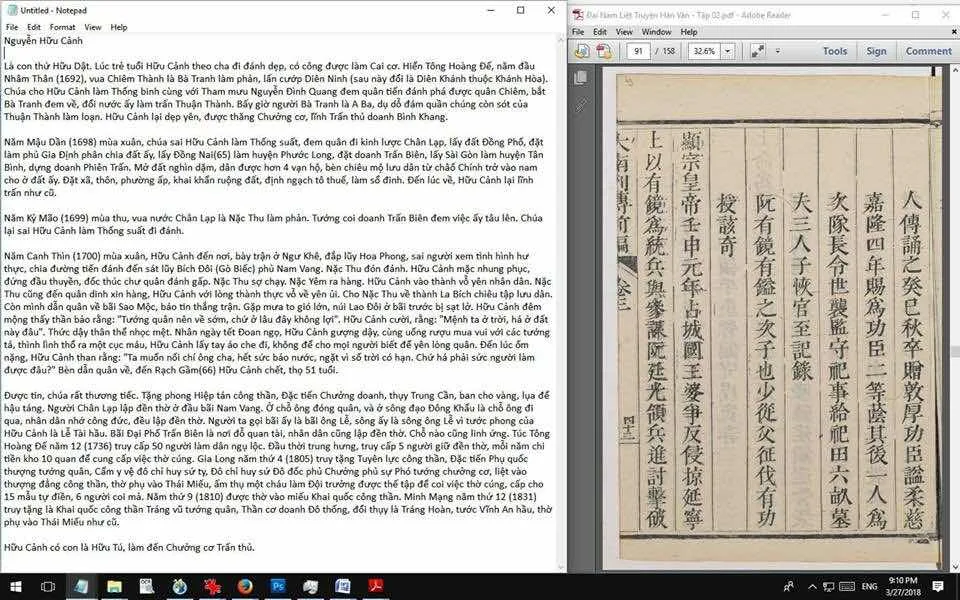 Untitled - Notepad
File Edit Format View Help
Nguyễn Hữu Cảnh
Là con thứ Hữu Dật. Lúc trẻ tuổi Hữu Cảnh theo cha đi đánh dẹp, có công được làm Cai cơ. Hiển Tông Hoàng Đế, năm đầu
Nhâm Thân (1692), vua Chiêm Thành là Bà Tranh làm phản, lấn cướp Diên Ninh (sau này đổi là Diên Khánh thuộc Khánh Hòa).
Chúa cho Hữu Cảnh làm Thống binh cùng với Tham mưu Nguyễn Đình Quang đem quân tiến đánh phá được quân Chiêm, bắt
Bà Tranh đem về, đổi nước ấy làm trấn Thuận Thành. Bấy giờ người Bà Tranh là A Ba, dụ dỗ đám quần chúng còn sót của
Thuận Thành làm loạn. Hữu Cảnh lại dẹp yên, được thăng Chưởng cơ, lĩnh Trấn thủ doanh Bình Khang.
Năm Mậu Dần (1698) mùa xuân, chúa sai Hữu Cảnh làm Thống suất, đem quân đi kinh lược Chân Lạp, lấy đất Đồng Phố, đặt
làm phủ Gia Định phân chia đất ấy, lấy Đồng Nai(65) làm huyện Phước Long, đặt doanh Trấn Biên, lấy Sài Gòn làm huyện Tân
Bình, dựng doanh Phiên Trấn. Mở đất nghìn dặm, dân được hơn 4 vạn hộ, bèn chiêu mộ lưu dân từ châố Chính trở vào nam
cho ở đất ấy. Đặt xã, thôn, phường ấp, khai khẩn ruộng đất, định ngạch tô thuế, làm sổ đinh. Đến lúc về, Hữu Cảnh lại lĩnh
trấn như cũ.
Năm Kỷ Mão (1699) mùa thu, vua nước Chân Lạp là Nặc Thu làm phản. Tướng coi doanh Trấn Biên đem việc ấy tâu lên. Chúa
lại sai Hữu Cảnh làm Thống suất đi đánh.
Năm Canh Thìn (1700) mùa xuân, Hữu Cảnh đến nơi, bày trận ở Ngư Khê, đắp lũy Hoa Phong, sai người xem tình hình hư
thực, chia đường tiến đánh đến sát lũy Bích Đôi (Gò Biếc) phủ Nam Vang. Nặc Thu đón đánh. Hữu Cảnh mặc nhung phục,
đứng đầu thuyền, đốc thúc chư quân đánh gấp. Nặc Thu sợ chạy. Nặc Yêm ra hàng. Hữu Cảnh vào thành vỗ yên nhân dân. Nặc
Thu cũng đến quân dinh xin hàng. Hữu Cảnh với lòng thành thực vỗ về yên ủi. Cho Nặc Thu về thành La Bích chiêu tập lưu dân.
Còn mình dẫn quân về bãi Sao Mộc, báo tin thắng trận. Gặp mưa to gió lớn, núi Lao Đôi ở bãi trước bị sạt lở. Hữu Cảnh đêm
mộng thấy thần bảo rằng: "Tướng quân nên về sớm, chớ ở lâu đây không lợi". Hữu Cảnh cười, rằng: "Mệnh ta ở trời, há ở đất
này đâu". Thức dậy thân thể nhọc mệt. Nhân ngày tết Đoan ngọ, Hữu Cảnh gượng dậy, cùng uống rượu mua vui với các tướng
tá, thình lình thổ ra một cục máu, Hữu Cảnh lấy tay áo che đi, không để cho mọi người biết để yên lòng quân. Đến lúc ốm
nặng, Hữu Cảnh than rằng: "Ta muốn nối chí ông cha, hết sức báo nước, ngặt vì số trời có hạn. Chứ há phải sức người làm
được đâu?" Bèn dẫn quân về, đến Rạch Gầm(66) Hữu Cảnh chết, thọ 51 tuổi.
Được tin, chúa rất thương tiếc. Tặng phong Hiệp tán công thần, Đặc tiến Chưởng doanh, thụy Trung Cần, ban cho vàng, lụa để
hậu táng. Người Chân Lạp lập đền thờ ở đầu bãi Nam Vang. Ở chỗ ông đóng quân, và ở sông đạo Đông Khẩu là chỗ ông đi
qua, nhân dân nhớ công đức, đều lập đền thờ. Người ta gọi bãi ấy là bãi ông Lễ, sông ấy là sông ông Lễ vì tước phong của
Hữu Cảnh là Lễ Tài hầu. Bãi Đại Phố Trấn Biên là nơi đỗ quan tài, nhân dân cũng lập đền thờ. Chỗ nào cũng linh ứng. Túc Tông
Hoàng Đế năm 12 (1736) truy cấp 50 người làm dân ngụ lộc. Đầu thời trung hưng, truy cấp 5 người giữ đền thờ, mỗi năm chi
tiền kho 10 quan để cung cấp việc thờ cúng. Gia Long năm thứ 4 (1805) truy tặng Tuyên lực công thần, Đặc tiến Phụ quốc
thượng tướng quân, Cẩm y vệ đô chỉ huy sứ ty, Đô chỉ huy sứ Đô đốc phủ Chưởng phủ sự Phó tướng chưởng cơ, liệt vào
thượng đẳng công thần, thờ phụ vào Thái Miếu, ấm thụ một cháu làm Đội trưởng được thế tập để coi việc thờ cúng, cấp cho
15 mẫu tự điền, 6 người coi mả. Năm thứ 9 (1810) được thờ vào miếu Khai quốc công thần. Minh Mạng năm thứ 12 (1831)
truy tặng là Khai quốc công thần Tráng vũ tướng quân, Thần cơ doanh Đô thống, đổi thụy là Tráng Hoàn, tước Vĩnh An hầu, thờ
phụ vào Thái Miếu như cũ.
Hữu Cảnh có con là Hữu Tú, làm đến Chưởng cơ Trấn thủ.
Đại Nam Liệt Truyện Hán Văn - Tập 02.pdf - Adobe Reader
File Edit View Window Help
91 / 158 32.6% Tools Sign Comment
人傳誦之癸巳秋卒贈敦厚功臣諡柔慈
嘉隆四年賜為功臣二等蔭其後一人為
次隊長令世襲監守祀事給祀田六畝墓
夫三人子恢官至記錄
阮有鏡有鎰之次子也少從父征伐有功
授該奇
顯宗皇帝壬申元年占城國王婆爭反侵掠延寧
上以有鏡為統兵與參謀阮廷光領兵進討擊破
大南列傳前編 卷三
四十三
ENG
9:10 PM
3/27/2018